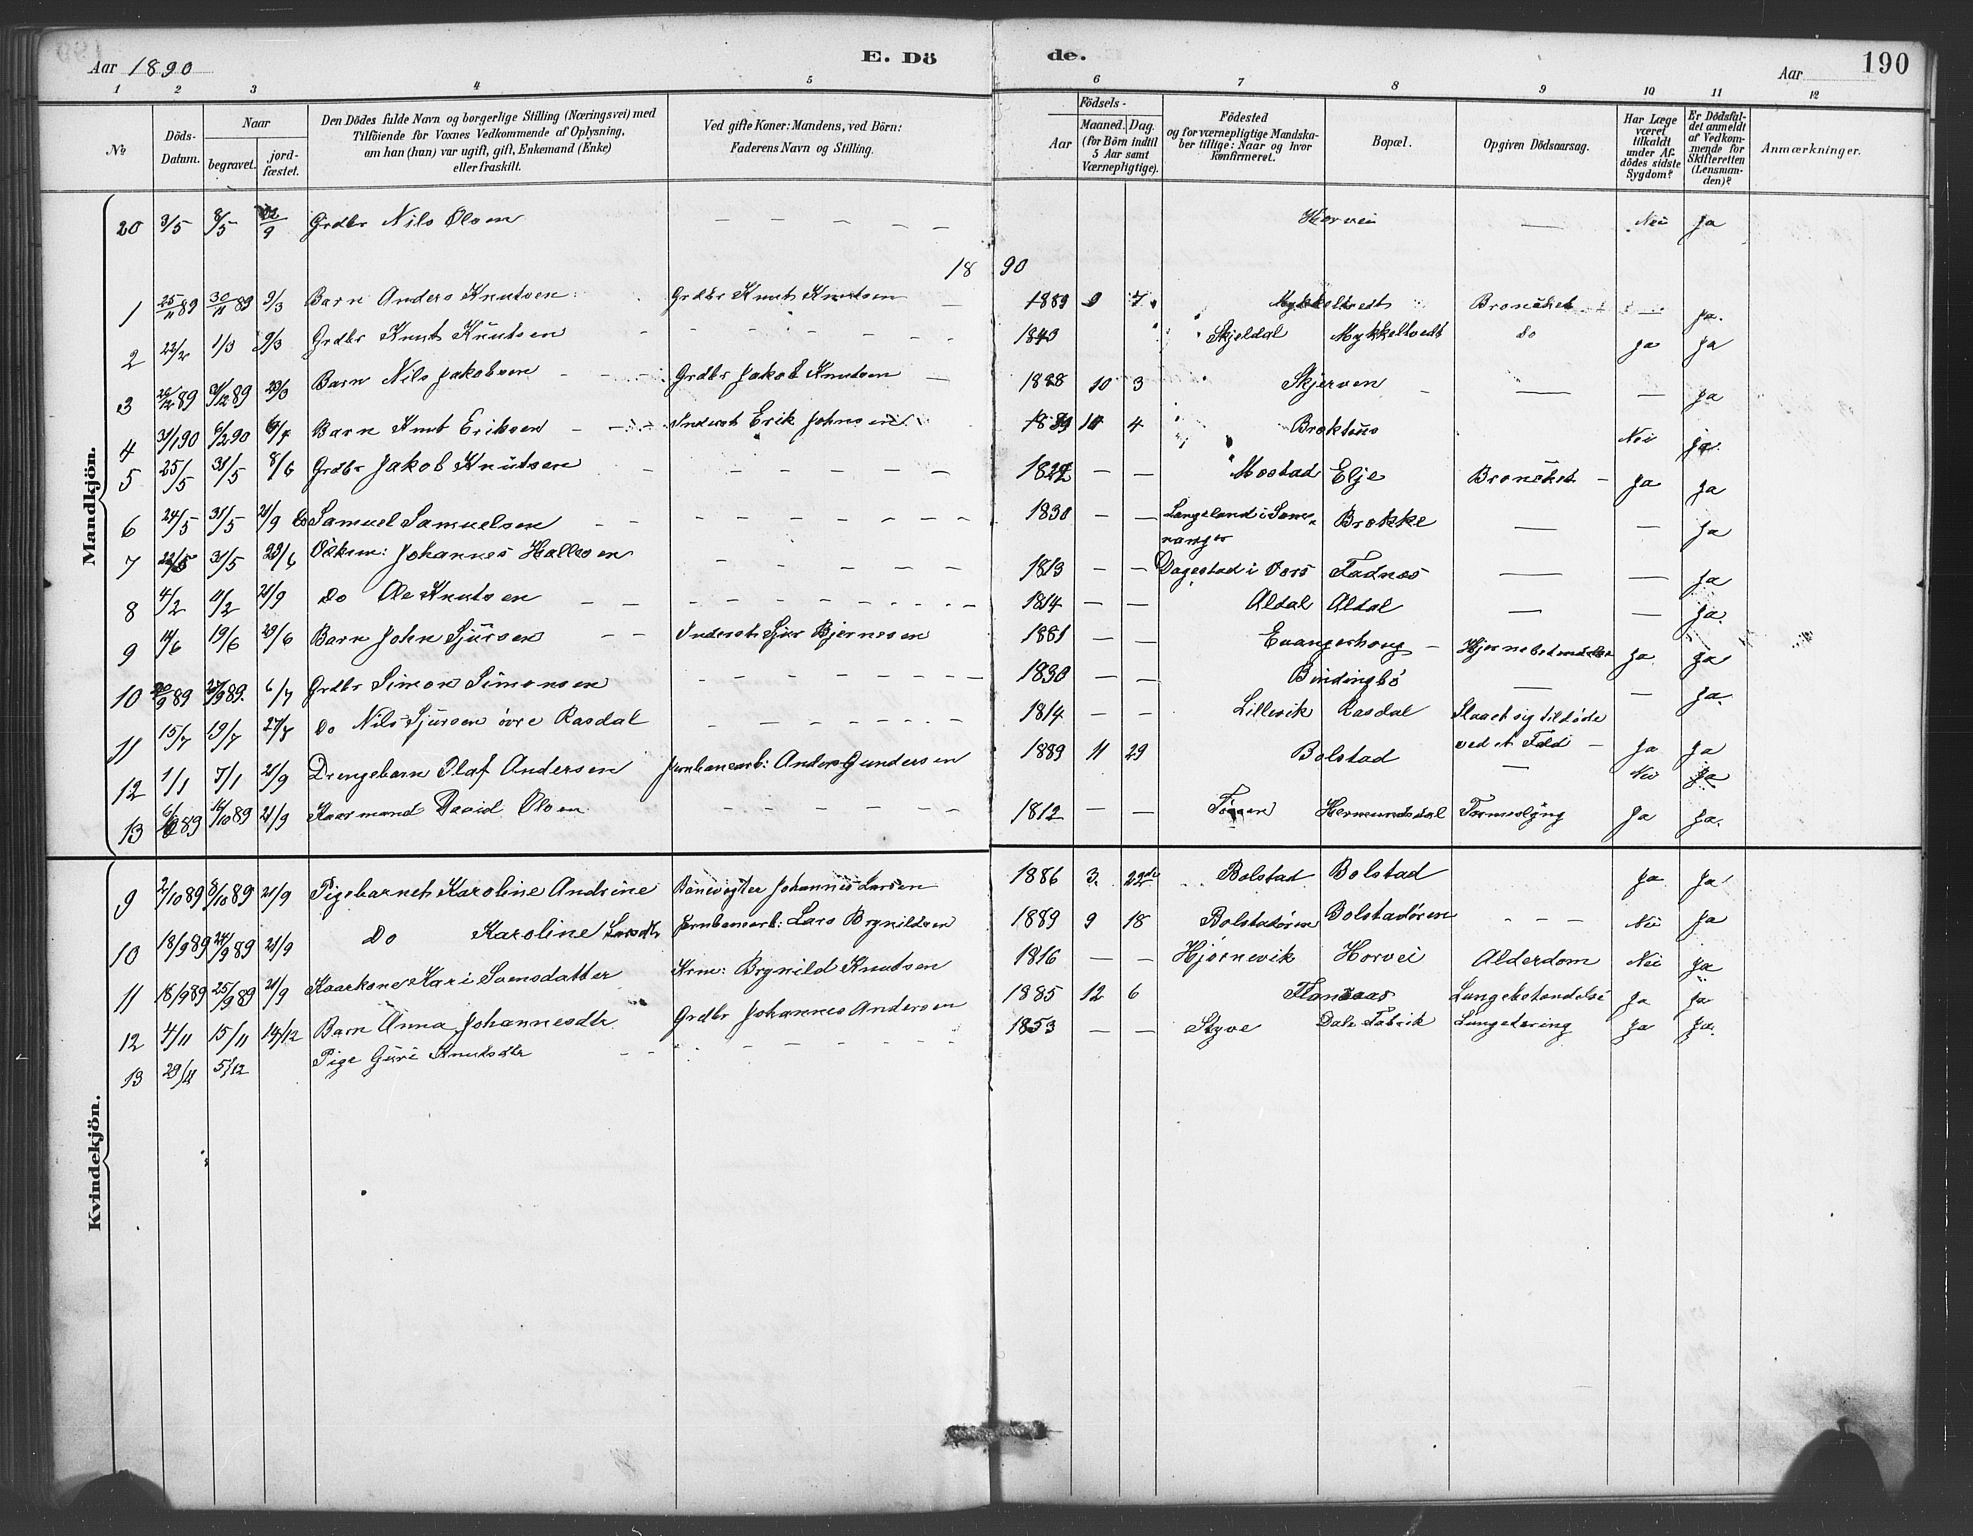 Aar 1890
E. Dö de.
Aar 190
1 2 3 4 5 6 7 8 9 10 11 12
№
Döds-Datum.
Naar
begravet.
jord-fæstet.
Den Dödes fulde Navn og borgerlige Stilling (Næringsvei) med
Tilföiende for Voxnes Vedkommende af Oplysning,
om han (hun) var ugift, gift, Enkemand (Enke)
eller fraskilt.
Ved gifte Koner: Mandens, ved Börn:
Faderens Navn og Stilling.
Födsels-
Aar
Maaned. Dag.
(for Börn indtil
5 Aar samt
Værnepligtige).
Födested
og for værnepligtige Mandska-
ber tillige: Naar og hvor
konfirmeret.
Bopæl.
Opgiven Dödsaarsag.
Har Læge
været
tilkaldt
under Af-
dödes sidste
Sygdom?
Er Dödsfal-
det anmeldt
af Vedkom-
mende for
Skifteretten
(Lensman-
den)?
Anmærkninger.
Mandkjön.
20 3/5 8/5 Grdbr Nils Olsen — — — — — Horvei — Nei Ja
18 90
1 25/11 89 30/11 89 9/3 Barn Anders Knutsen Grdbr Knut Knutsen — 1889 9 7 Mykkeltvedt — Ja.
2 22/2 1/3 9/3 Grdbr Knut Knutsen — — — 1843 Skjeldal Mykkeltvedt Do Ja Ja
3 26/12 89 31/12 89 23/3 Barn Nils Jakobsen — — Grdbr Jakob Knutsen — 1888 10 3 Skjerven — — — Ja
4 31/1 90 6/2 90 Barn Knut Eriksen — — Inderst Erik Johnsen 4 Nei Ja.
5 25/5 31/5 8/6 Grdbr Jakob Knutsen — — — — — Mostad Elje — Ja Ja
6 24/5 31/5 21/9 Samuel Samuelsen — — — — — 1830 — — Langeland i Sam-
nanger Brekke — Ja
7 22/5 31/5 29/6 Johannes Hallesen — — — — — 1813 — — Dagestad i Vors Fadnes — — Ja
8 4/2 11/2 21/9 Do Ole Knutsen — — — — — 1814 — — Aldal Aldal — — Ja.
9 14/6 19/6 29/6 Barn John Sjursen — — Inderst Sjur Bjernesen 1881 — — Evangerhoug — Ja Ja
10 27/9 89. 6/7 Grdbr Simon Simonsen — — — — — 1830 — — Bindingbö — — Ja.
11 15/7 19/7 27/7 Do Nils Sjursen övre Rasdal — — — — — 1814 — — Lillevik Rasdal Slaaet sig tildöde
ved et Fald — Ja Ja
12 1/1 7/1 21/9 Drengebarn Olaf Andersen Jernbanearb: Anders Gundersen 1889 11 29 Bolstad — Nei Ja
13 21/9 Kaarmand David Olsen — — — — — 1812 — — Hermundsdal Ja Ja.
Kvindekjön.
9 2/10 89 8/10 89 21/9 Pigebarnet Karoline Andrine Banevogter Johannes Larsen 1886 3. 22de Bolstad Bolstad Ja Ja
10 18/9 89 24/9 89 21/9 Do Karoline Larsdtr Jernbanearb: Lars Brynildsen 1889 9 18 Bolstadören Bolstadören — — — Nei Ja
11 18/9 89 25/9 89 21/9 Kaarkone Kari Samsdatter Krm: Brynild Knutsen 1816 — — Hjörnevik Horvei Alderdom Nei Ja
12 4/11 15/11 14/12 Barn Anna Johannesdtr Grdbr Johannes Andersen 1885 12 6 Lungebetændelse Ja Ja
13 29/11 5/12 Pige Guri Knutsdtr — — — — — 1853 — — Styve Dale Fabrik Lungetæring Ja Ja.